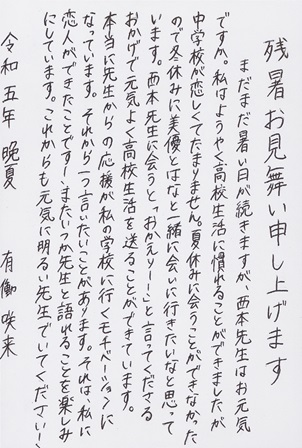 残暑お見舞い申し上げます
まだまだ暑い日が続きますが、西本先生はお元気
ですか。私はようやく高校生活に慣れることができましたが、
中学校が恋しくてたまりません。夏休みに会うことができなかった
ので冬休みに美優とはなと一緒に会いに行きたいなと思って
います。西本先生に会うと「おかえりー!」と言ってくださる
おかげで元気よく高校生活を送ることができています。
本当に先生からの応援が私の学校に行くモチベーションに
なっています。それから一つ言いたいことがあります。それは、私に
恋人ができたことです!またいつか先生と語れることを楽しみ
にしています。これからも元気に明るい先生でいてください!
令和五年 晩夏 有働咲来